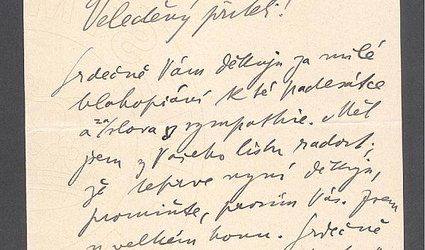 Veleděný příteli!
Srdečně Vám děkuji za milé
blahopřání k té padesátce
a za slova sympathie. Měl
jsem z Vašeho listu radost;
že teprve nyní děkuji,
promiňte, prosím Vás. Jsem
v velkém honu. Srdečně